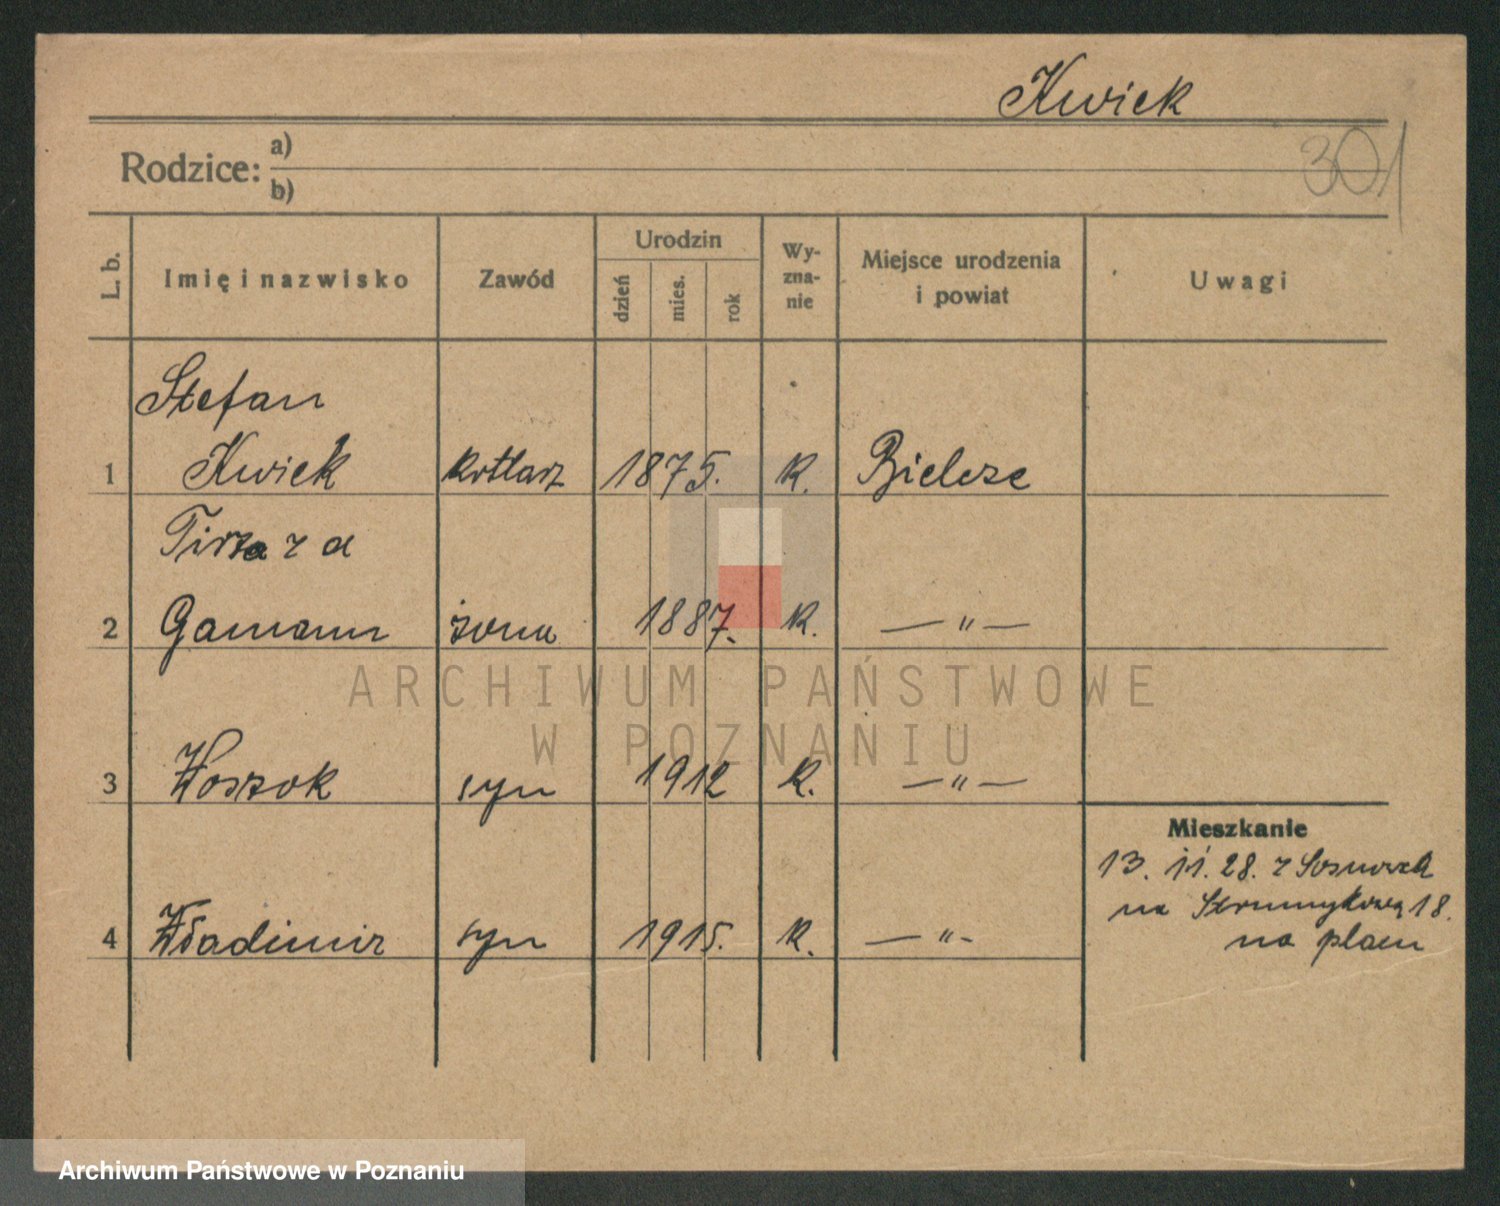 Kwiek
301
Rodzice: a)
b)
L. b. Imię i nazwisko Zawód Urodzin dzień mies. rok Wy-zna-nie Miejsce urodzenia i powiat Uwagi
Stefan
1 Kwiek kotlarz 1875. k. Bielcze
Tirza z d
2 Gamann żona 1887. k. — " —
ARCHIWUM PAŃSTWOWE
W POZNANIU
3 Woszok syn 1912 k. — " —
Mieszkanie
13. 11. 28. z
na 18.
4 Władimir syn 1915. k. — " -
na placu
Archiwum Państwowe w Poznaniu